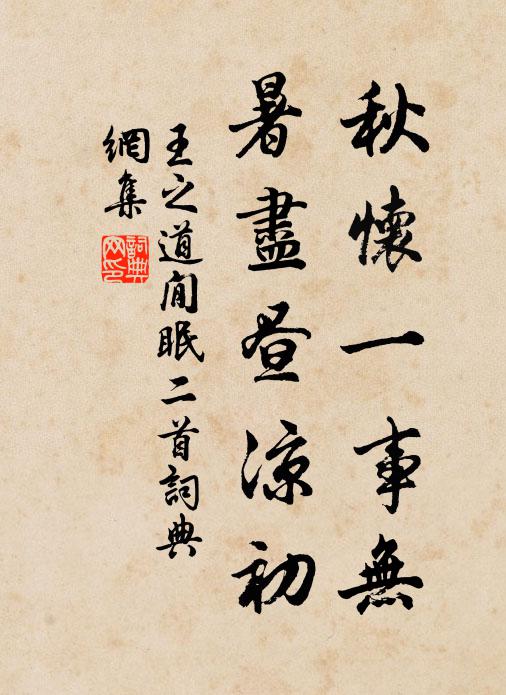 秋懷一事無
暑盡昼凉初
王之道閒眠二首詞典
網集
詞典
网印